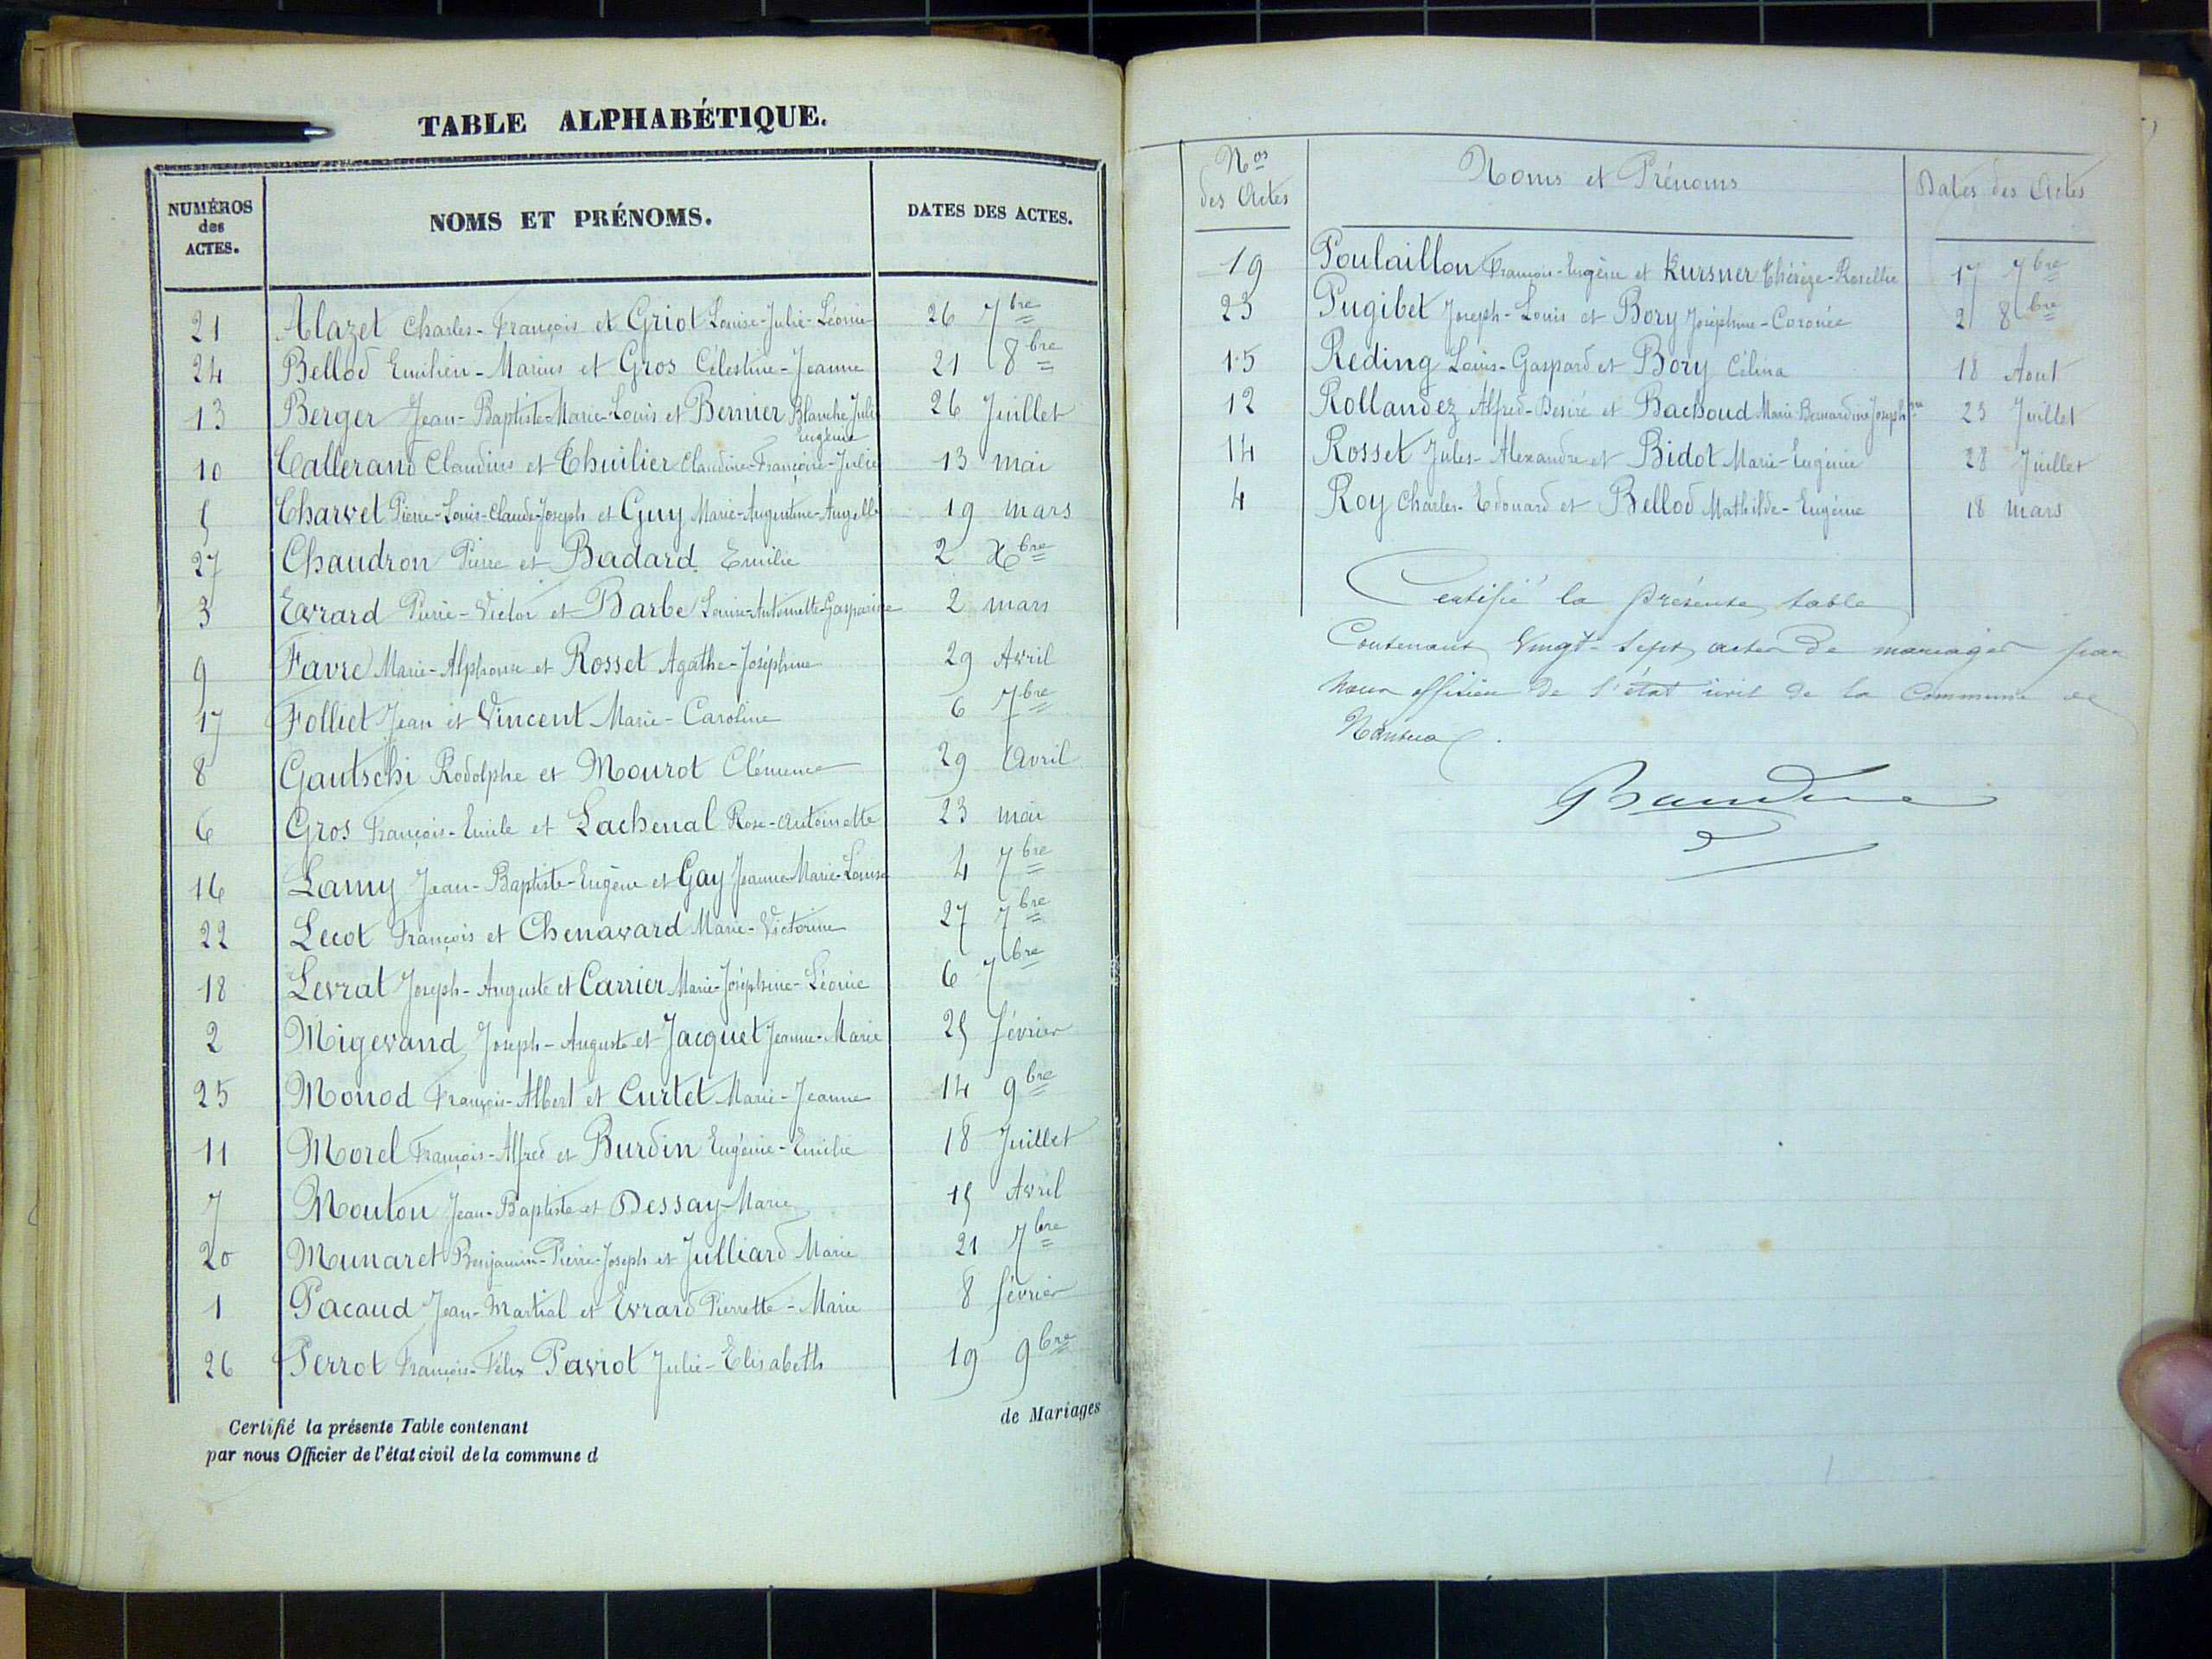 TABLE ALPHABÉTIQUE.
NUMÉROS des ACTES. NOMS ET PRÉNOMS. DATES DES ACTES.
21 Alazet Charles-François et Griot Louise-Julie-Léonie 26 7bre
24 Bellod Emilien-Marius et Gros Célestine-Jeanne 21 8bre
13 Berger Jean-Baptiste-Marie-Louis et Bernier Blanche Julie Eugénie 26 Juillet
10 Callerand Claudius et Thuilier Claudine-Françoise-Julie 13 mai
5 Charvet Pierre-Louis-Claude-Joseph et Guy Marie-Augustine-Angelle 19 mars
27 Chaudron Pierre et Badard Emilie 2 Xbre
3 Evrard Pierre-Victor et Barbe Louise-Antoinette-Gasparine 2 mars
9 Favre Marie-Alphonse et Rosset Agathe-Joséphine 29 Avril
17 Folliet Jean et Vincent Marie-Caroline 6 7bre
8 Gautschi Rodolphe et Mourot Clémence 29 Avril
6 Gros François-Emile et Lachenal Rose-Antoinette 23 mai
16 Lamy Jean-Baptiste-Eugène et Gay Jeanne-Marie-Louise 4 7bre
22 Lecot François et Chenavard Marie-Victorine 27 7bre
18 Levrat Joseph-Auguste et Carrier Marie-Joséphine-Léonie 6 7bre
2 Migevand Joseph-Auguste et Jacquet Jeanne-Marie 25 février
25 Monod François-Albert et Curtet Marie-Jeanne 14 9bre
11 Morel François-Alfred et Burdin Eugénie-Emilie 18 Juillet
7 Mouton Jean-Baptiste et Dessay Marie 15 Avril
20 Munaret Benjamin-Pierre-Joseph et Julliard Marie 21 7bre
1 Pacaud Jean-Martial et Evrard Pierrette-Marie 8 février
26 Perrot François-Félix Paviot Julie-Elisabeth 19 9bre
Certifié la présente Table contenant de Mariages
par nous Officier de l'état civil de la commune d
Nos des Actes Noms et Prénoms Dates des Actes
19 Poulaillon François-Eugène et Kursner Thérèze-Roseline 17 7bre
23 Pugibet Joseph-Louis et Bory Joséphine-Coronée 2 8bre
15 Reding Louis-Gaspard et Bory Célina 18 Aout
12 Rollandez Alfred-Desiré et Bachoud Marie-Bernardine Josephine 23 Juillet
14 Rosset Jules-Alexandre et Bidot Marie-Eugénie 28 Juillet
4 Roy Charles-Edouard et Bellod Mathilde-Eugénie 18 mars
Certifié la présente table
Contenant Vingt-sept actes de mariages par
nous officier de l'état civil de la Commune de
Nantua.